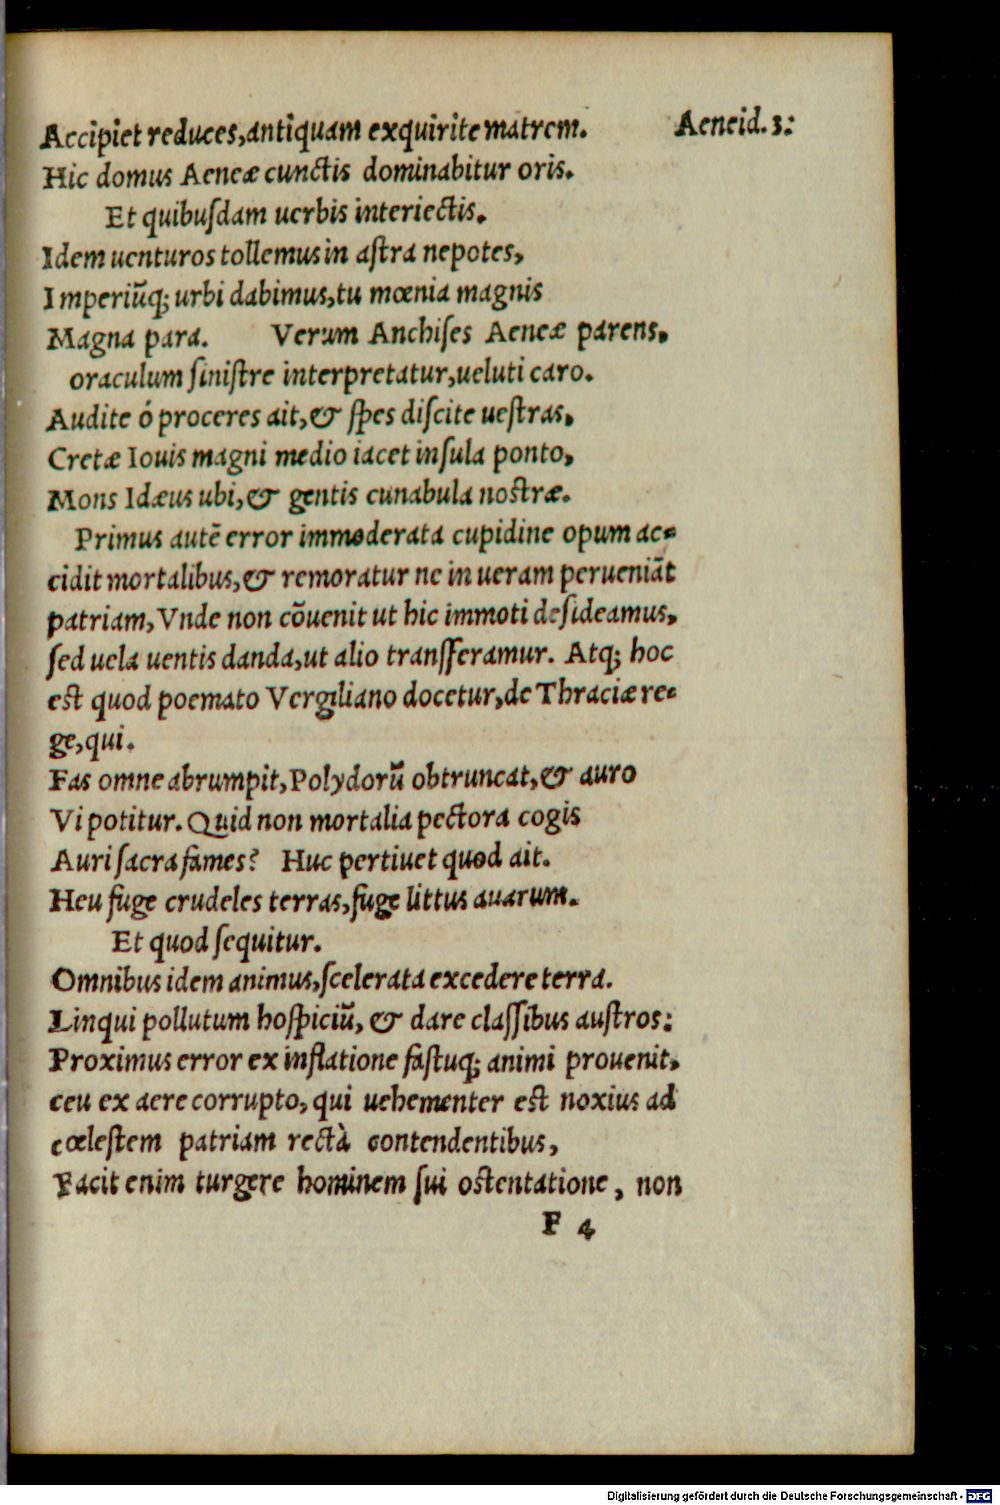 Accipiet reduces, antiquam exquirite matrem. Aeneid. 3:
Hic domus Aeneæ cunctis dominabitur oris.
Et quibuſdam uerbis interiectis.
Idem uenturos tollemus in aſtra nepotes,
Imperiũq; urbi dabimus, tu mœnia magnis
Magna para. Verum Anchiſes Aeneæ parens,
oraculum ſiniſtre interpretatur, ueluti caro.
Audite ó proceres ait, & ſpes diſcite ueſtras,
Cretæ Iouis magni medio iacet inſula ponto,
Mons Idæus ubi, & gentis cunabula noſtræ.
Primus autẽ error immoderata cupidine opum ac-
cidit mortalibus, & remoratur ne in ueram perueniãt
patriam, Vnde non cõuenit ut hic immoti deſideamus,
ſed uela uentis danda, ut alio tranſferamur. Atq; hoc
est quod poemato Vergiliano docetur, de Thraciæ re-
ge, qui.
Fas omne abrumpit, Polydorũ obtruncat, & auro
Vi potitur. Quid non mortalia pectora cogis
Auri ſacra fames? Huc pertiuet quod ait.
Heu fuge crudeles terras, fuge littus auarum.
Et quod ſequitur.
Omnibus idem animus, ſcelerata excedere terra.
Linqui pollutum hoſpiciũ, & dare claſſibus auſtros:
Proximus error ex inflatione faſtuq; animi prouenit,
ceu ex aere corrupto, qui uehementer est noxius ad
cœleſtem patriam rectà contendentibus,
Facit enim turgere hominem ſui ostentatione, non
F 4
Digitalisierung gefördert durch die Deutsche Forschungsgemeinschaft - DFG